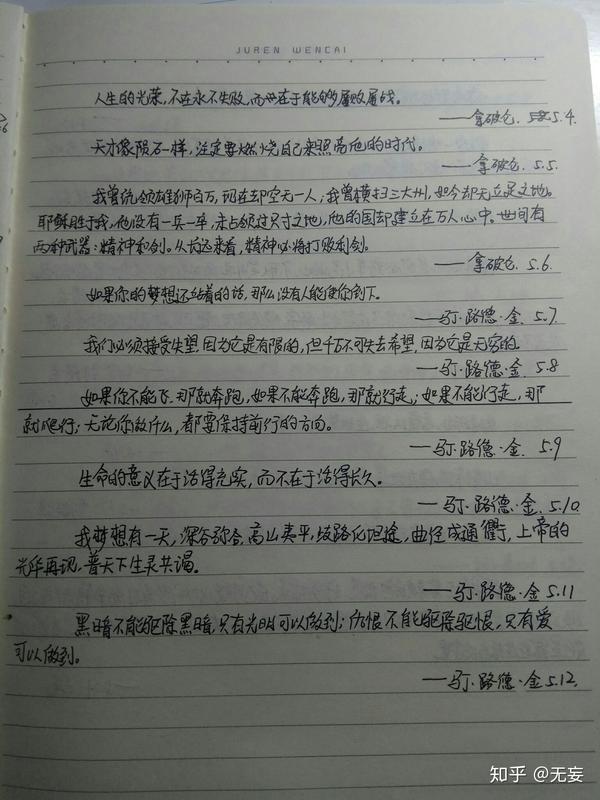 JUREN WENCAI
人生的光荣,不在永不失败,而在于能够屡败屡战。
——拿破仑. 5.4.
天才像陨石一样,注定要燃烧自己来照亮他的时代。
——拿破仑. 5.5.
我曾统领雄狮百万,现在却空无一人,我曾横扫三大州,如今却无立足之地。
耶稣胜于我,他没有一兵一卒,未占领过尺寸之地,他的国却建立在万人心中。世间有
两种武器:精神和剑。从长远来看,精神必将打败利剑。
——拿破仑. 5.6.
如果你的梦想还站着的话,那么没有人能使你倒下。
——马丁·路德·金. 5.7.
我们必须接受失望,因为它是有限的,但千万不可失去希望,因为它是无穷的.
——马丁·路德·金. 5.8
如果你不能飞,那就奔跑,如果不能奔跑,那就行走;如果不能行走,那
就爬行;无论你做什么,都要保持前行的方向。
——马丁·路德·金. 5.9
生命的意义在于活得充实,而不在于活得长久。
——马丁·路德·金. 5.10.
我梦想有一天,深谷弥合,高山夷平,歧路化坦途,曲径成通衢,上帝的
光华再现,普天下生灵共谒。
——马丁·路德·金 5.11
黑暗不能驱除黑暗,只有光明可以做到;仇恨不能驱除驱恨,只有爱
可以做到。
——马丁·路德·金 5.12.
知乎 @无妄